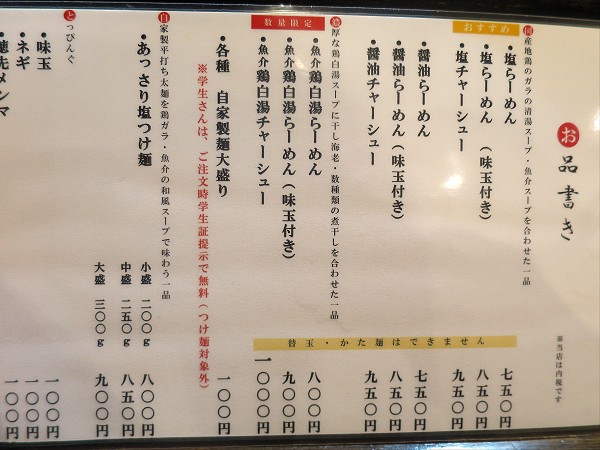 お品書き
※当店は内税です
国産地鶏のガラの清湯スープ・魚介スープを合わせた一品
おすすめ
・塩らーめん 七五〇円
・塩らーめん(味玉付き) 八五〇円
・塩チャーシュー 九五〇円
・醤油らーめん 七五〇円
・醤油らーめん(味玉付き) 八五〇円
・醤油チャーシュー 九五〇円
替玉・かた麺はできません
濃厚な鶏白湯スープに干し海老・数種類の煮干しを合わせた一品
数量限定
・魚介鶏白湯らーめん 八〇〇円
・魚介鶏白湯らーめん(味玉付き) 九〇〇円
・魚介鶏白湯チャーシュー 一〇〇〇円
・各種 自家製麺大盛り 一〇〇円
※学生さんは、ご注文時学生証提示で無料(つけ麺対象外)
自家製平打ち太麺を鶏ガラ・魚介の和風スープで味わう一品
・あっさり塩つけ麺
小盛 二〇〇g 八〇〇円
中盛 二五〇g 八五〇円
大盛 三〇〇g 九〇〇円
とっぴんぐ
・味玉 一〇〇円
・ネギ 一〇〇円
穂先メンマ 一〇〇円